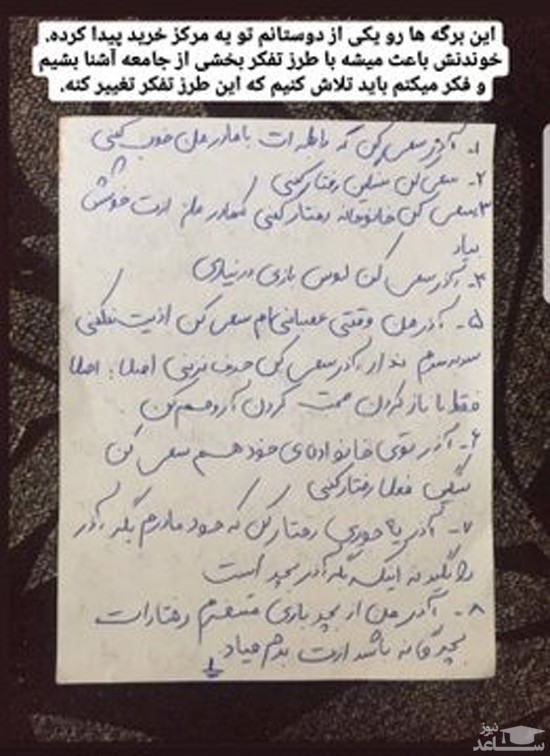 این برگه ها رو یکی از دوستانم تو یه مرکز خرید پیدا کرده.
خوندنش باعث میشه با طرز تفکر بخشی از جامعه آشنا بشیم
و فکر میکنم باید تلاش کنیم که این طرز تفکر تغییر کنه.
۱- آذر سعی کن که رابطه ات با مادر من خوب کنی
۲- سعی کن سنگین رفتار کنی
۳- سعی کن خانومانه رفتار کنی که مادر مانم ازت خوشش
بیاد
۴- آذر سعی کن لوس بازی در نیاری
۵- آذر من وقتی عصبانی ام سعی کن اذیت نکنی
سر به سرم نذار آذر سعی کن حرف نزنی اصلا، اصلا
فقط با ناز کردن صحبت کردن آرومم کن
۶- آذر توی خانواده ی خودم سعی کن
سنگین فعلا رفتار کنی
۷- آذر یه جوری رفتار کن که خود مادرم بگه آذر
را بگیر نه اینکه بگه آذر بچه است
۸- آذر من از بچه بازی متنفرم رفتارات
بچه گانه باشد ازت بدم میاد
نیوز
ساعد